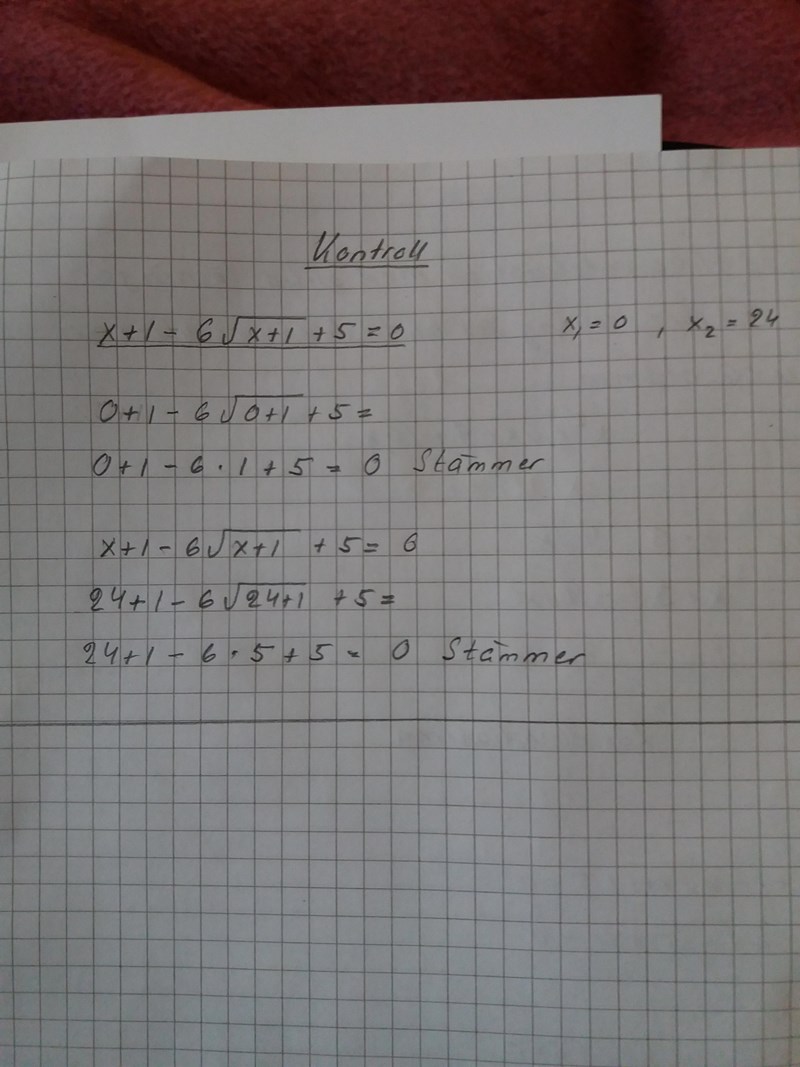 Kontroll
x+1 - 6√(x+1) + 5 = 0 x₁ = 0 , x₂ = 24
0+1 - 6√(0+1) + 5 =
0+1 - 6 · 1 + 5 = 0 Stämmer
x+1 - 6√(x+1) + 5 = 6
24+1 - 6√(24+1) + 5 =
24+1 - 6 · 5 + 5 = 0 Stämmer